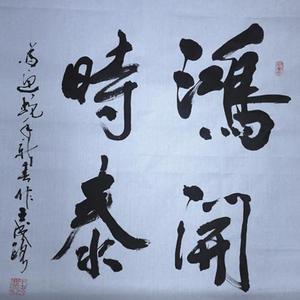 鴻開
時泰
為迎蛇年新春作